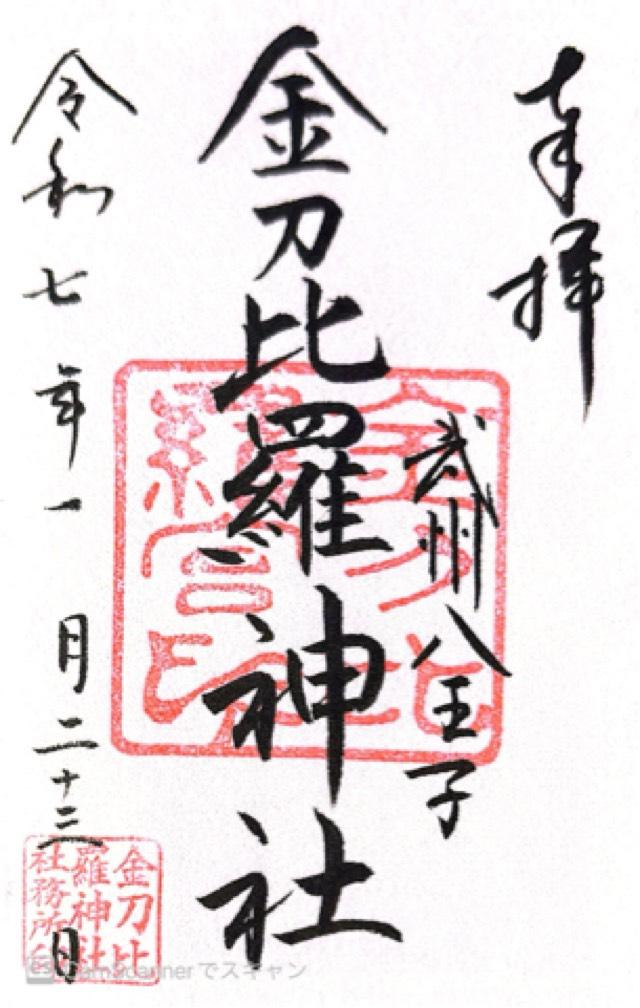 奉拝
武州八王子
金刀比羅神社
令和七年一月二十三日
金刀比
羅宮印
金刀比
羅神社
社務所印
CamScannerでスキャン